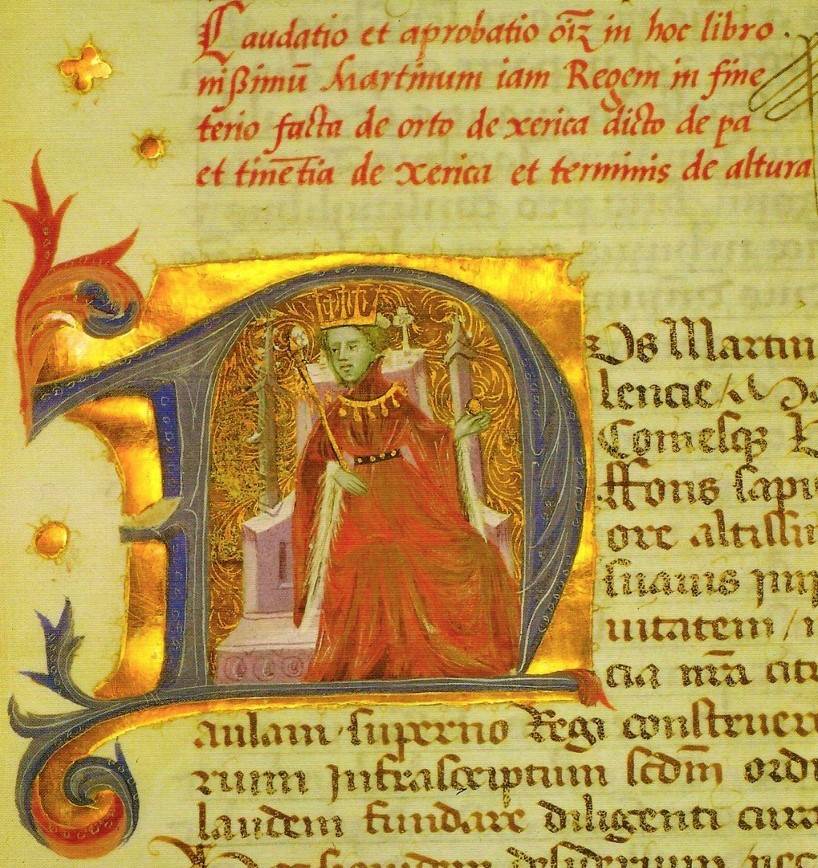 Laudatio et aprobatio oīz in hoc libro
nißimū Martinum iam Regem in fine
terio facta de orto de xerica dicto de pa
et tinētia de xerica et terminis de altura
Nos Martin
lencie
Comesq
ffons sapi
ore altissi
suauis
uitatem / i
cia nr̄a cit
aulam superno Regi construer
rum infrascriptum scdm̄ ordi
laudem fundare diligenti cura
desiderium / nec